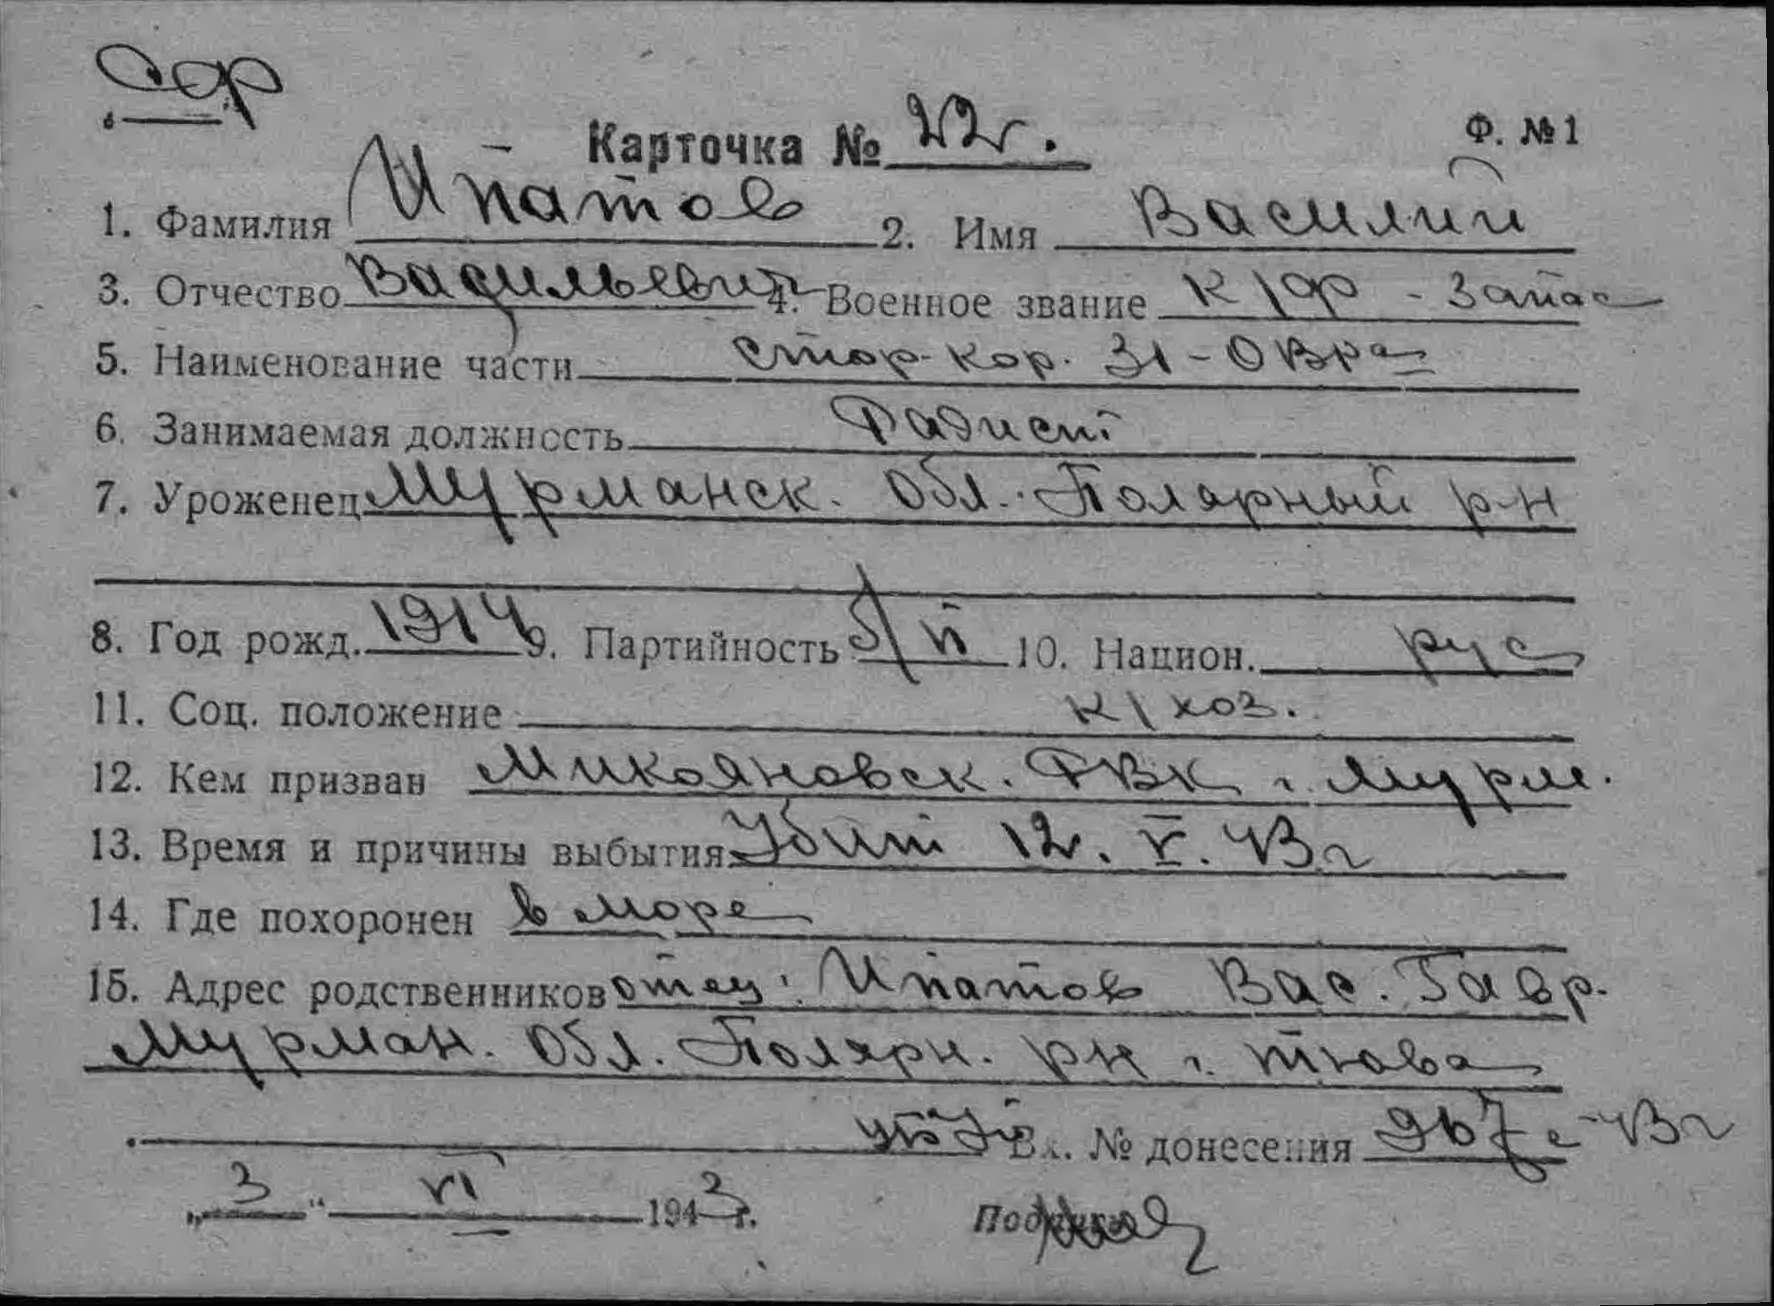 Сф
Карточка № 22. Ф. № 1
1. Фамилия Ипатов 2. Имя Василий
3. Отчество Васильевич 4. Военное звание к/ф - запас
5. Наименование части Стор. кор. 31 - ОВРа
6. Занимаемая должность Радист
7. Уроженец Мурманск. Обл. Полярный р-н
8. Год рожд. 1914 9. Партийность б/п 10. Национ. рус
11. Соц. положение к/хоз.
12. Кем призван Микояновск. РВК г. Мурм.
13. Время и причины выбытия Убит 12. V. 43 г
14. Где похоронен в море
15. Адрес родственников отец: Ипатов Вас. Гавр.
Мурман. Обл. Полярн. рн г. тюва
Вх. № донесения 967с - 43 г
„3“ VI 1943 г. Подпись